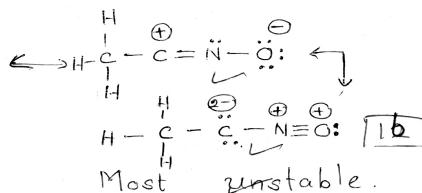 H
⊕ ⊖
⟷ H - C - C = N̈ - Ö: ⟷
H
H 2- ⊕ ⊕
H - C - C̈ - N ≡ O: 1b
H
Most unstable.